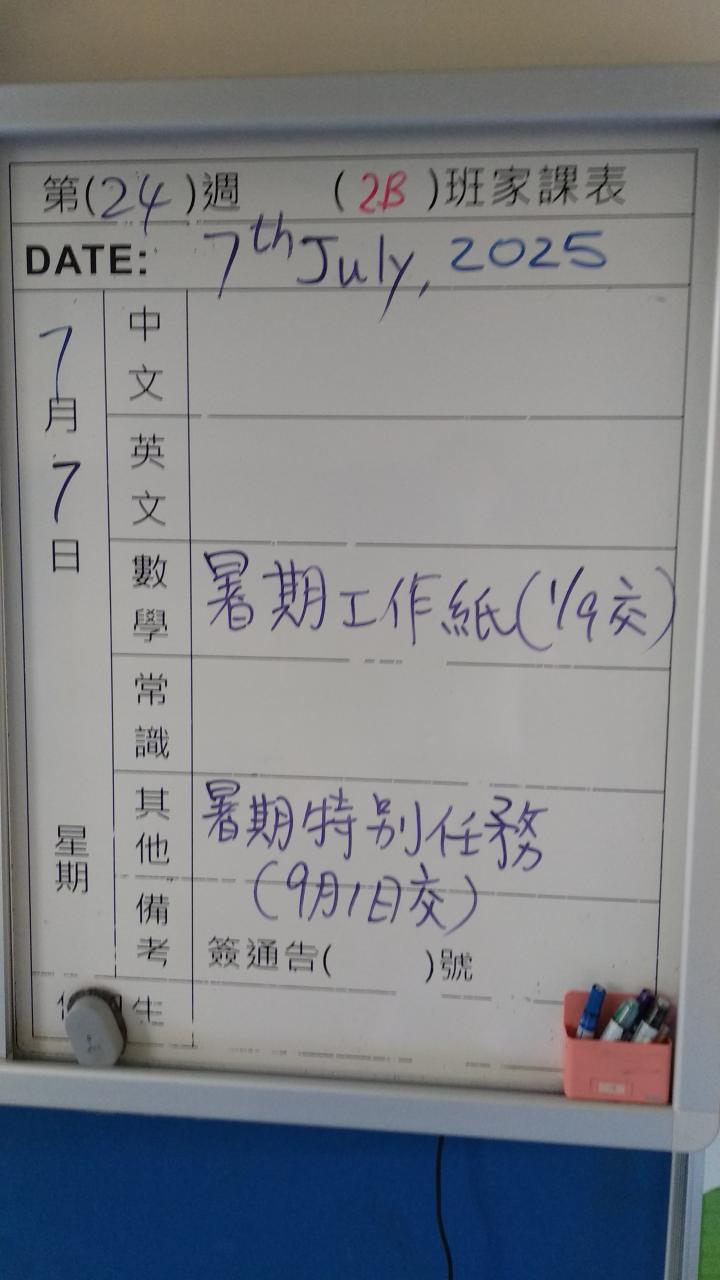 第(24)週 (2B)班家課表
DATE: 7th July, 2025
7月7日
星期
中文
英文
數學 暑期工作紙(1/9交)
常識
其他 暑期特別任務
(9月1日交)
備考 簽通告( )號
生